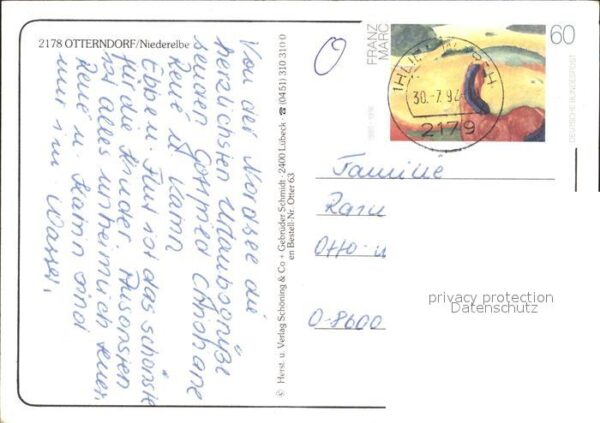 2178 OTTERNDORF/Niederelbe
Von der Nordsee die
herzlichsten Urlaubsgrüße
senden Gottfried Christiane
René u. Karin
Ebbe u. Flut ist das schönste
für die Kinder. Ansonsten
ist alles unheimlich teuer.
René u. Karin sind
nur im Wasser.
Herst. u. Verlag Schöning & Co + Gebrüder Schmidt · 2400 Lübeck · ☎ (0451) 310 310 0
en Bestell-Nr. Otter 63
FRANZ
MARC
60
DEUTSCHE BUNDESPOST
30.-7.92
2179
Familie
Otto-u
O-8600
privacy protection
Datenschutz